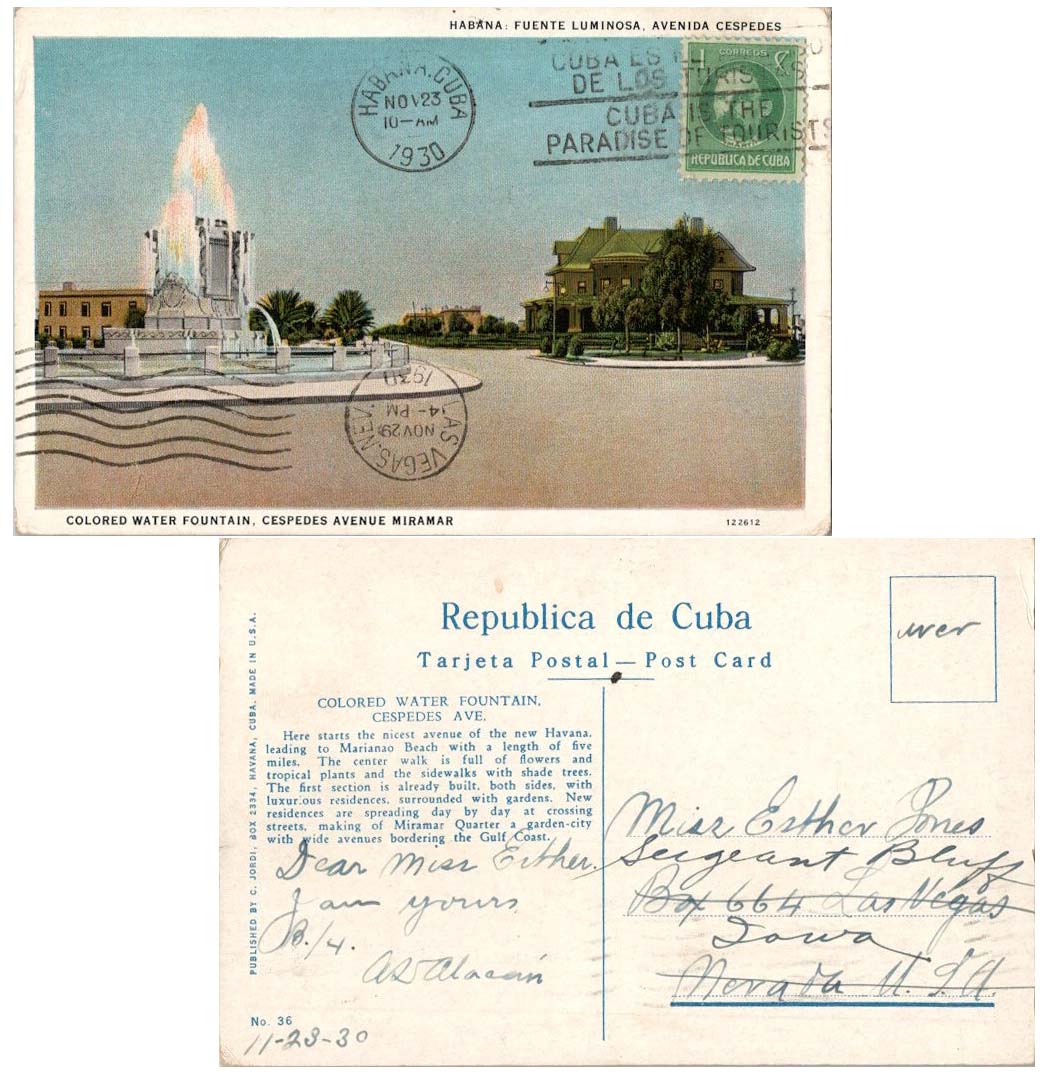 HABANA: FUENTE LUMINOSA, AVENIDA CESPEDES
HABANA. CUBA
NOV 23
10-AM
1930
CUBA ES EL
DE LOS TURISTAS
CUBA IS THE
PARADISE OF TOURISTS
1 CORREOS
REPUBLICA DE CUBA
LAS VEGAS, NEV.
NOV 29
4-PM
1930
COLORED WATER FOUNTAIN, CESPEDES AVENUE MIRAMAR
122612
Republica de Cuba
Tarjeta Postal — Post Card
over
PUBLISHED BY C. JORDI, BOX 2334, HAVANA, CUBA. MADE IN U.S.A.
COLORED WATER FOUNTAIN,
CESPEDES AVE.
Here starts the nicest avenue of the new Havana,
leading to Marianao Beach with a length of five
miles. The center walk is full of flowers and
tropical plants and the sidewalks with shade trees.
The first section is already built, both sides, with
luxurious residences, surrounded with gardens. New
residences are spreading day by day at crossing
streets, making of Miramar Quarter a garden-city
with wide avenues bordering the Gulf Coast.
Dear Miss Esther.
I am yours
B./4.
No. 36
11-23-30
Miss Esther Jones
Sergeant Bluff
Box 664 Las Vegas
Iowa
Nevada U.S.A.